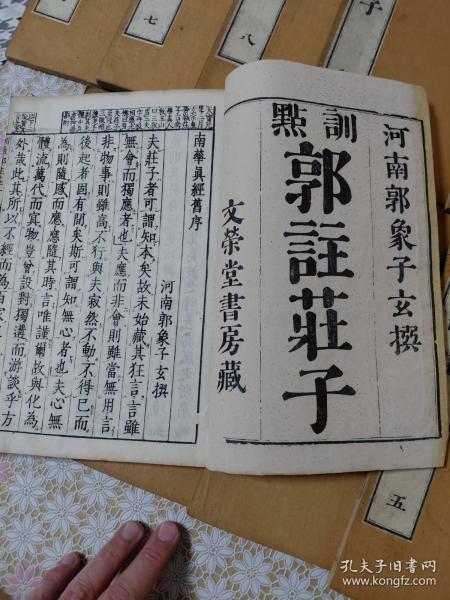 七
八
子
河南郭象子玄撰
訓點
郭註莊子
文榮堂書房藏
南華眞經舊序
河南郭象子玄撰
夫莊子者可謂知本矣故未始藏其狂言言雖
無會而獨應者也夫應而非會則雖當無用言
非物事則雖高不行與夫寂然不動不得已而
後起者固有間矣斯可謂知無心者也夫心無
為則隨感而應應隨其時言唯謹爾故與化為
體流萬代而冥物豈曾設對獨遘而游談乎方
外哉此其所以不經而為百家
五
孔夫子旧书网
www.kongfz.com